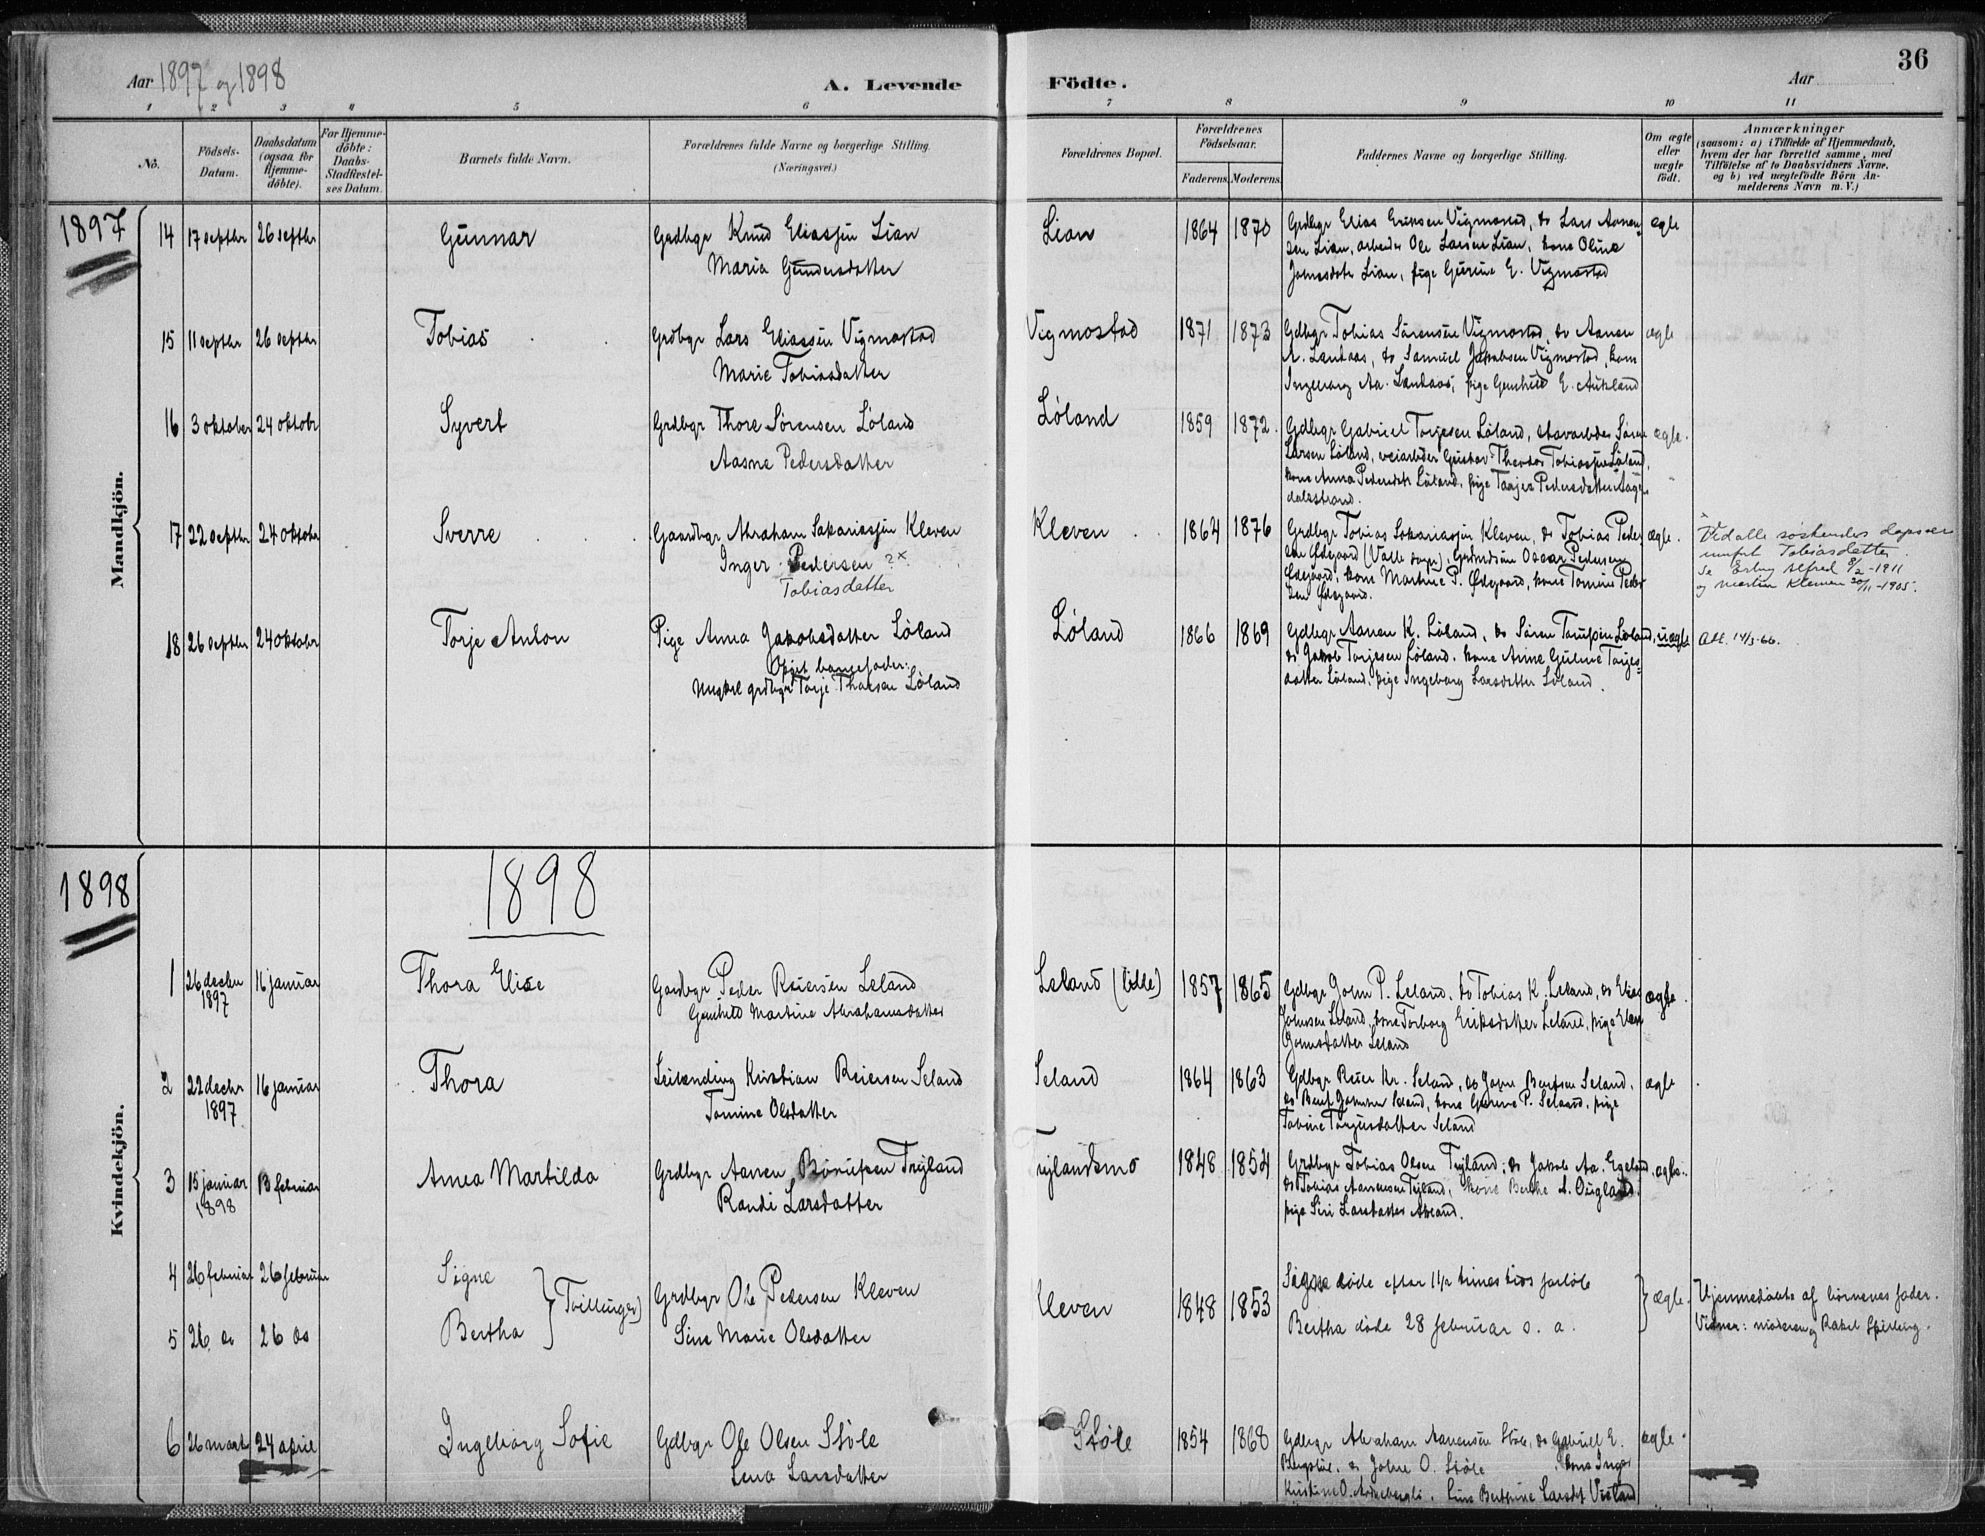 36
Aar 1897 og 1898
A. Levende Födte.
Aar
1 2 3 4 5 6 7 8 9 10 11
No.
Födsels-Datum.
Daabsdatum (ogsaa for Hjemme-döbte).
For Hjemme-döbte: Daabs-Stadfæstel-ses Datum.
Barnets fulde Navn.
Forældrenes fulde Navne og borgerlige Stilling.
(Næringsvei.)
Forældrenes Bopæl.
Forældrenes Födselsaar.
Faderens. Moderens.
Faddernes Navne og borgerlige Stilling.
Om ægte eller uægte födt.
Anmærkninger
(saasom: a) i Tilfælde af Hjemmedaab, hvem der har forrettet samme, med Tilföielse af to Daabsvidners Navne, og b) ved uægtefödte Börn An-melderens Navn m. V.)
1897
Mandkjön.
14 17 septbr 26 septbr Gunnar Grdbgr Knud Eliassen Lian Lian 1864 1870 Grdbgr Elias Eriksen Vigmostad, do Lars Aanen- ægte
Maria Gundersdatter
sen Lian, arbeider Ole Larsen Lian, kone Oline
Lian, pige Gurine E. Vigmostad
15 11 septbr 26 septbr Tobias Grdbgr Lars Eliassen Vigmostad Vigmostad 1871 1873 Gdbgr Tobias Sörensen Vigmostad, do Aanen ægte
Marie Tobiasdatter
A. do Samuel Jakobsen Vigmostad, kone
Ingeborg Aa. pige Gunhild E.
16 3 oktober 24 oktobr Syvert Grdbgr Thore Sörensen Löland Löland 1859 1872. Gdbgr Gabriel Torjesen Löland, Sören ægte.
Aasne Pedersdatter
Larsen Löland, veiarbeider Gustav Theodor Tobiassen Löland,
kone Anna Pedersdtr Löland, pige Pedersdatter
17 22 septbr 24 oktobr Sverre Gaardbgr Abraham Sakariassen Kleven Kleven 1864 1876 Grdbgr Tobias Sakariassen Kleven, do Tobias Peder- ægte.
Inger Pedersen ?x
Tobiasdatter
sen Ødegaard (Valle sogn). Oscar Pedersen
Ødegaard, kone Martine P. Ødegaard, kone Tomine Peder-
sen Ødegaard.
x Ved alle søskendes daps er
Tobiasdatter.
se Esby Alfred 8/2-1911
og Martin Klemen 20/11-1905.
18 26 septbr 24 oktobr Torje Anton Pige Anna Jakobsdatter Löland Löland 1866 1869 Gdbgr Aanen K. Löland, do Sören Löland, uægte Att. 14/3-66.
Opgit barnefader:
grdbgr Torje Thorsen Löland
do Jakob Torjesen Löland, kone Anne Guline Torjes-
datter Löland, pige Ingeborg Larsdatter Löland.
1898
1898
Kvindekjön.
1 26 decbr 1897 16 januar Thora Elise Gaardbgr Peder Reiersen Leland Leland (lille) 1857 1865 Gdbgr John P. Leland, do Tobias K. Leland, do Elias ægte.
Gunhild Martine Abrahamsdatter
Johnsen Leland, kone Torborg Eriksdatter Leland, pige
Johnsdatter Leland
2 22 decbr 1897 16 januar Thora Kristian Reiersen Seland Seland 1864 1863 Gdbgr Reier Kr. Seland, do John Berntsen Seland, ægte
Tomine Olsdatter
do Bernt Seland, kone P. Seland, pige
Tobine Seland
3 15 januar 1898 13 februar Anna Martilda Grdbgr Aanen Trijland Trijlandsmo 1848 1854 Grdbgr Tobias Olsen Trijland; do Jakob Aa. Egeland ægte.
Randi Larsdatter
do Tobias Aanensen Trijland, kone Berthe A.
pige Siri Larsdatter
4 26 februar 26 februar Signe Grdbgr Ole Pedersen Kleven Kleven 1848 1853 Signe döde efter 1 1/2 times tids forlöb ægte. Hjemmedöbte af börnenes fader.
(Tvillinger)
5 26 do 26 do Bertha Sine Marie Olsdatter Bertha döde 28 februar s. a. Vidner: moderen og Rakel
6 26 marts 24 april Ingeborg Sofie Gdbgr Ole Olsen Stöle Stöle 1854 1868 Gdbrgr Abraham Aanensen Stöle, do Gabriell E. ægte.
Lena Larsdatter
do John O. Stöle kone Inger
Kristine O. Larsdt